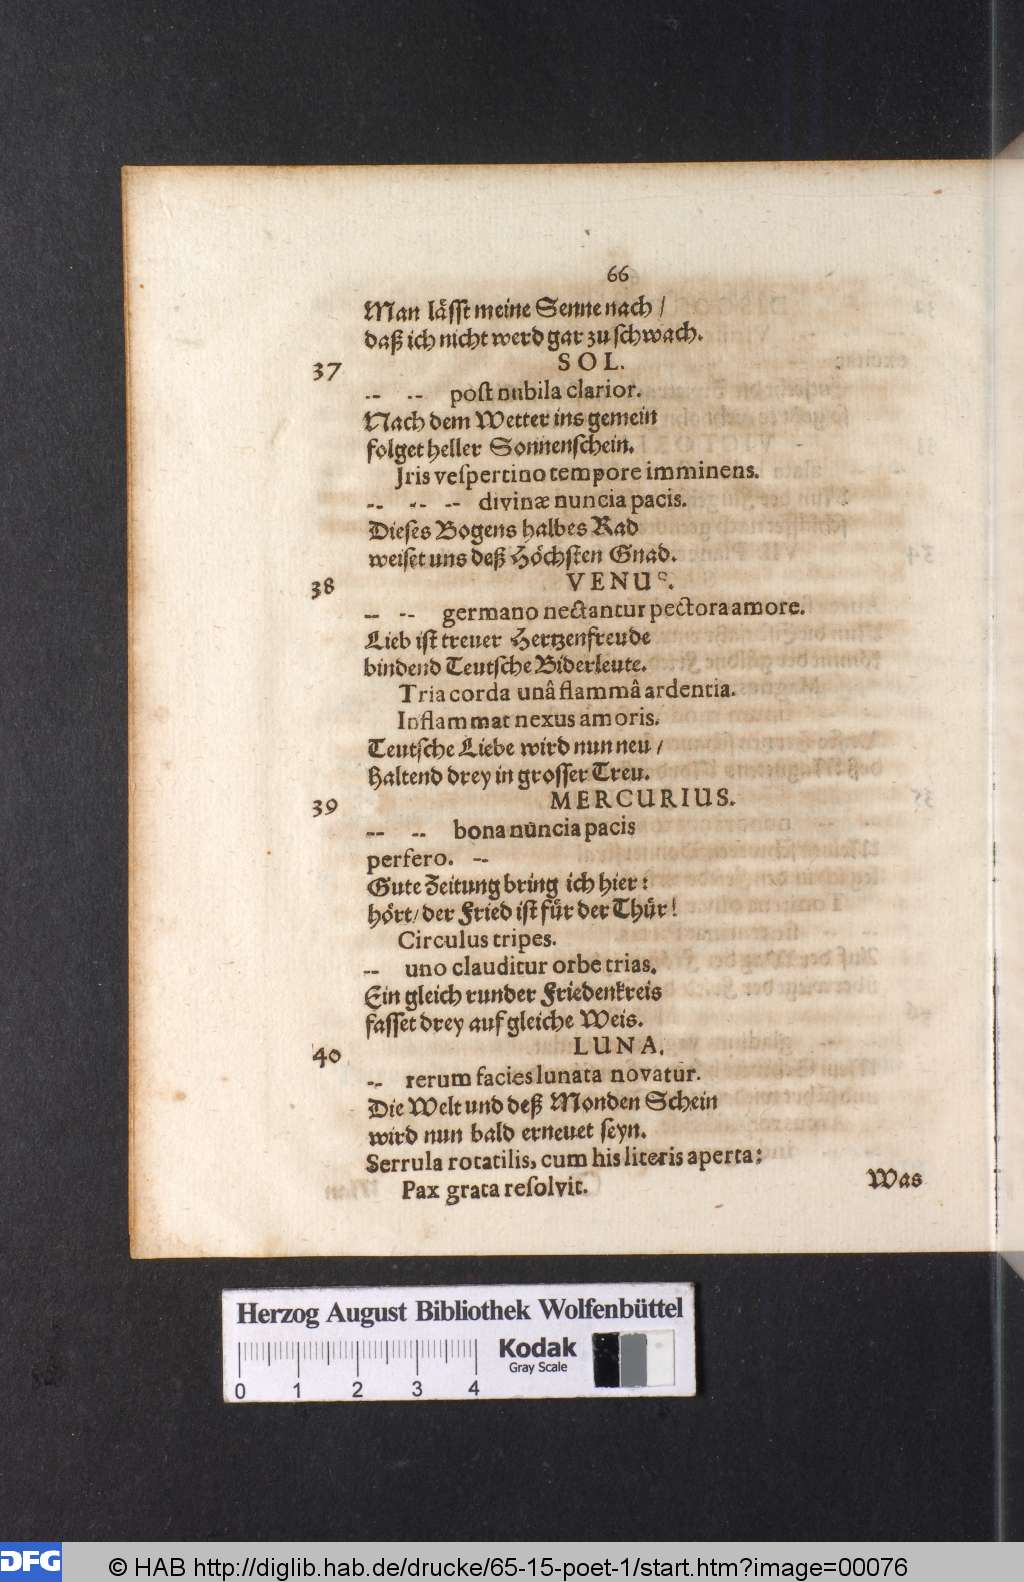 66
Man läſſt meine Senne nach /
daß ich nicht werd gar zu ſchwach.
SOL.
37
-- -- poſt nubila clarior.
Nach dem Wetter ins gemein
folget heller Sonnenſchein.
Jris veſpertino tempore imminens.
-- -- -- divinæ nuncia pacis.
Dieſes Bogens halbes Rad
weiſet uns deß Höchſten Gnad.
VENUS.
38
-- -- germano nectantur pectora amore.
Lieb iſt treuer Hertzenfreude
bindend Teutſche Biderleute.
Tria corda unâ flammâ ardentia.
Inflammat nexus amoris.
Teutſche Liebe wird nun neu /
Haltend drey in groſſer Treu.
MERCURIUS.
39
-- -- bona nuncia pacis
perfero. --
Gute Zeitung bring ich hier:
hört/ der Fried iſt für der Thür!
Circulus tripes.
-- uno clauditur orbe trias.
Ein gleich runder Friedenkreis
faſſet drey auf gleiche Weis.
LUNA.
40
-- rerum facies lunata novatur.
Die Welt und deß Monden Schein
wird nun bald erneuet ſeyn.
Serrula rotatilis, cum his literis aperta:
Pax grata reſolvit.
Was
Herzog August Bibliothek Wolfenbüttel
Kodak
Gray Scale
0 1 2 3 4
DFG
© HAB http://diglib.hab.de/drucke/65-15-poet-1/start.htm?image=00076